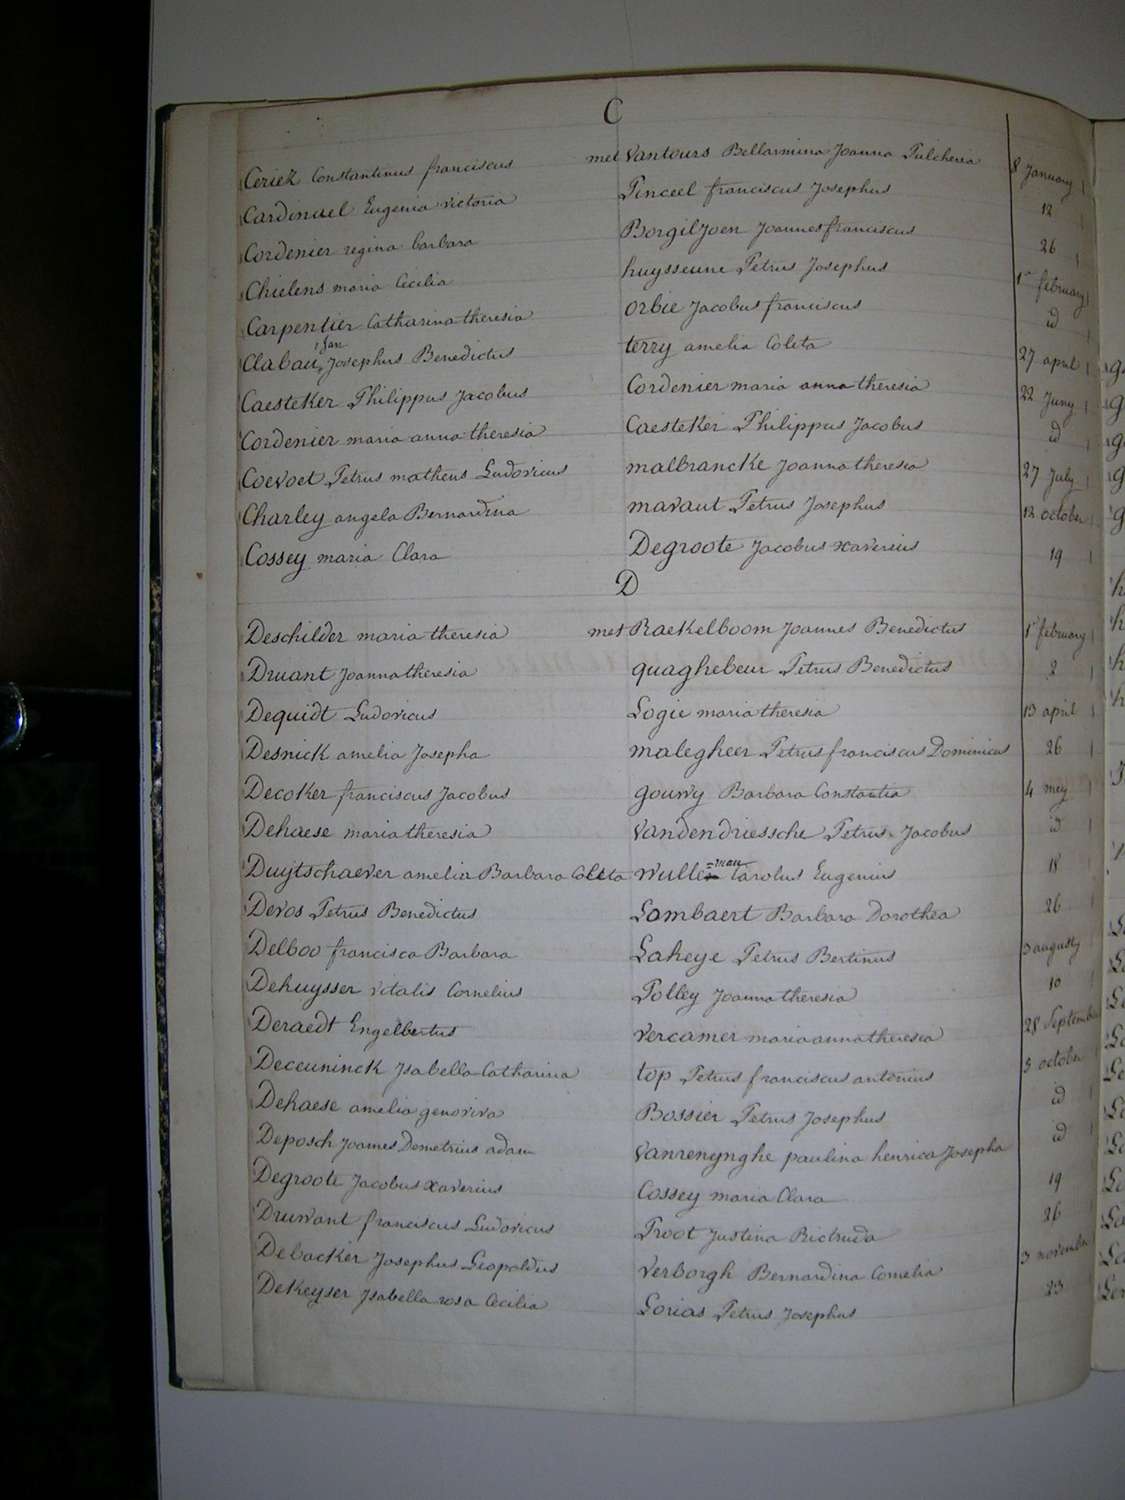 C
Ceriez Constantinus franciscus met Vantours Bellarmina Joanna Pulcheria 8 January
Cardinael Eugenia victoria Pinceel franciscus Josephus 12
Cordenier regina barbara Borgiljoen Joannes franciscus 26
Chielens maria Cecilia huysseune Petrus Josephus 1r february
Carpentier Catharina theresia orbie Jacobus franciscus id
Clabau Jan Josephus Benedictus terry amelia Coleta 27 april
Caesteker Philippus Jacobus Cordenier maria anna theresia 22 Juny
Cordenier maria anna theresia Caesteker Philippus Jacobus id
Coevoet Petrus matheus Ludovicus malbrancke Joanna theresia 27 July
Charley angela Bernardina mavaut Petrus Josephus 12 october
Cossey maria Clara Degroote Jacobus xaverius 19
D
Deschilder maria theresia met Raekelboom Joannes Benedictus 1r february
Druant Joanna theresia quaghebeur Petrus Benedictus 2
Dequidt Ludovicus Logie maria theresia 13 april
Desnick amelia Josepha malegheer Petrus franciscus Dominicus 26
Decoker franciscus Jacobus gouwy Barbara Constantia 4 mey
Dehaese maria theresia Vandendriessche Petrus Jacobus id
Duytschaever amelia Barbara Coleta Wulleman Carolus Eugenius 18
Devos Petrus Benedictus Lambaert Barbara Dorothea 26
Delboo francisca Barbara Lakeye Petrus Bertinus 3 augusty
Dehuysser vitalis Cornelius Polley Joanna theresia 10
Deraedt Engelbertus Vercamer maria anna theresia 28 September
Deceuninck Isabella Catharina top Petrus franciscus antonius 5 october
Dehaese amelia genoviva Bossier Petrus Josephus id
Deposch Joannes Demetrius adam Vanrenynghe paulina henrica Josepha id
Degroote Jacobus xaverius Cossey maria Clara 19
Druwant franciscus Ludovicus Proot Justina Rictruda 26
Debacker Josephus Leopoldus Verborgh Bernardina Cornelia 3 november
DeKeyser Isabella rosa Cecilia Gorias Petrus Josephus 23